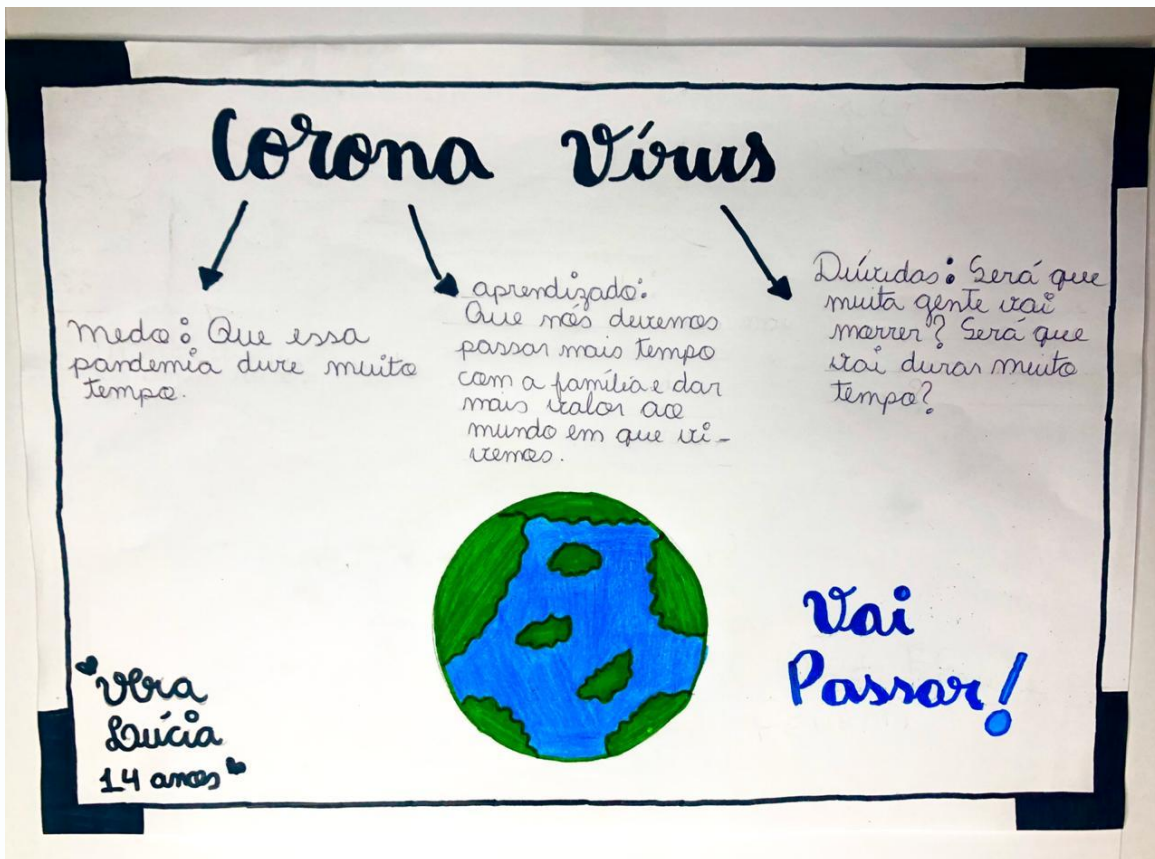 Corona Vírus
medo: Que essa
pandemia dure muito
tempo.
aprendizado:
Que nós devemos
passar mais tempo
com a família e dar
mais valor ao
mundo em que vi-
vemos.
Dúvidas: Será que
muita gente vai
morrer? Será que
vai durar muito
tempo?
Vai
Passar!
Vera
Lúcia
14 anos